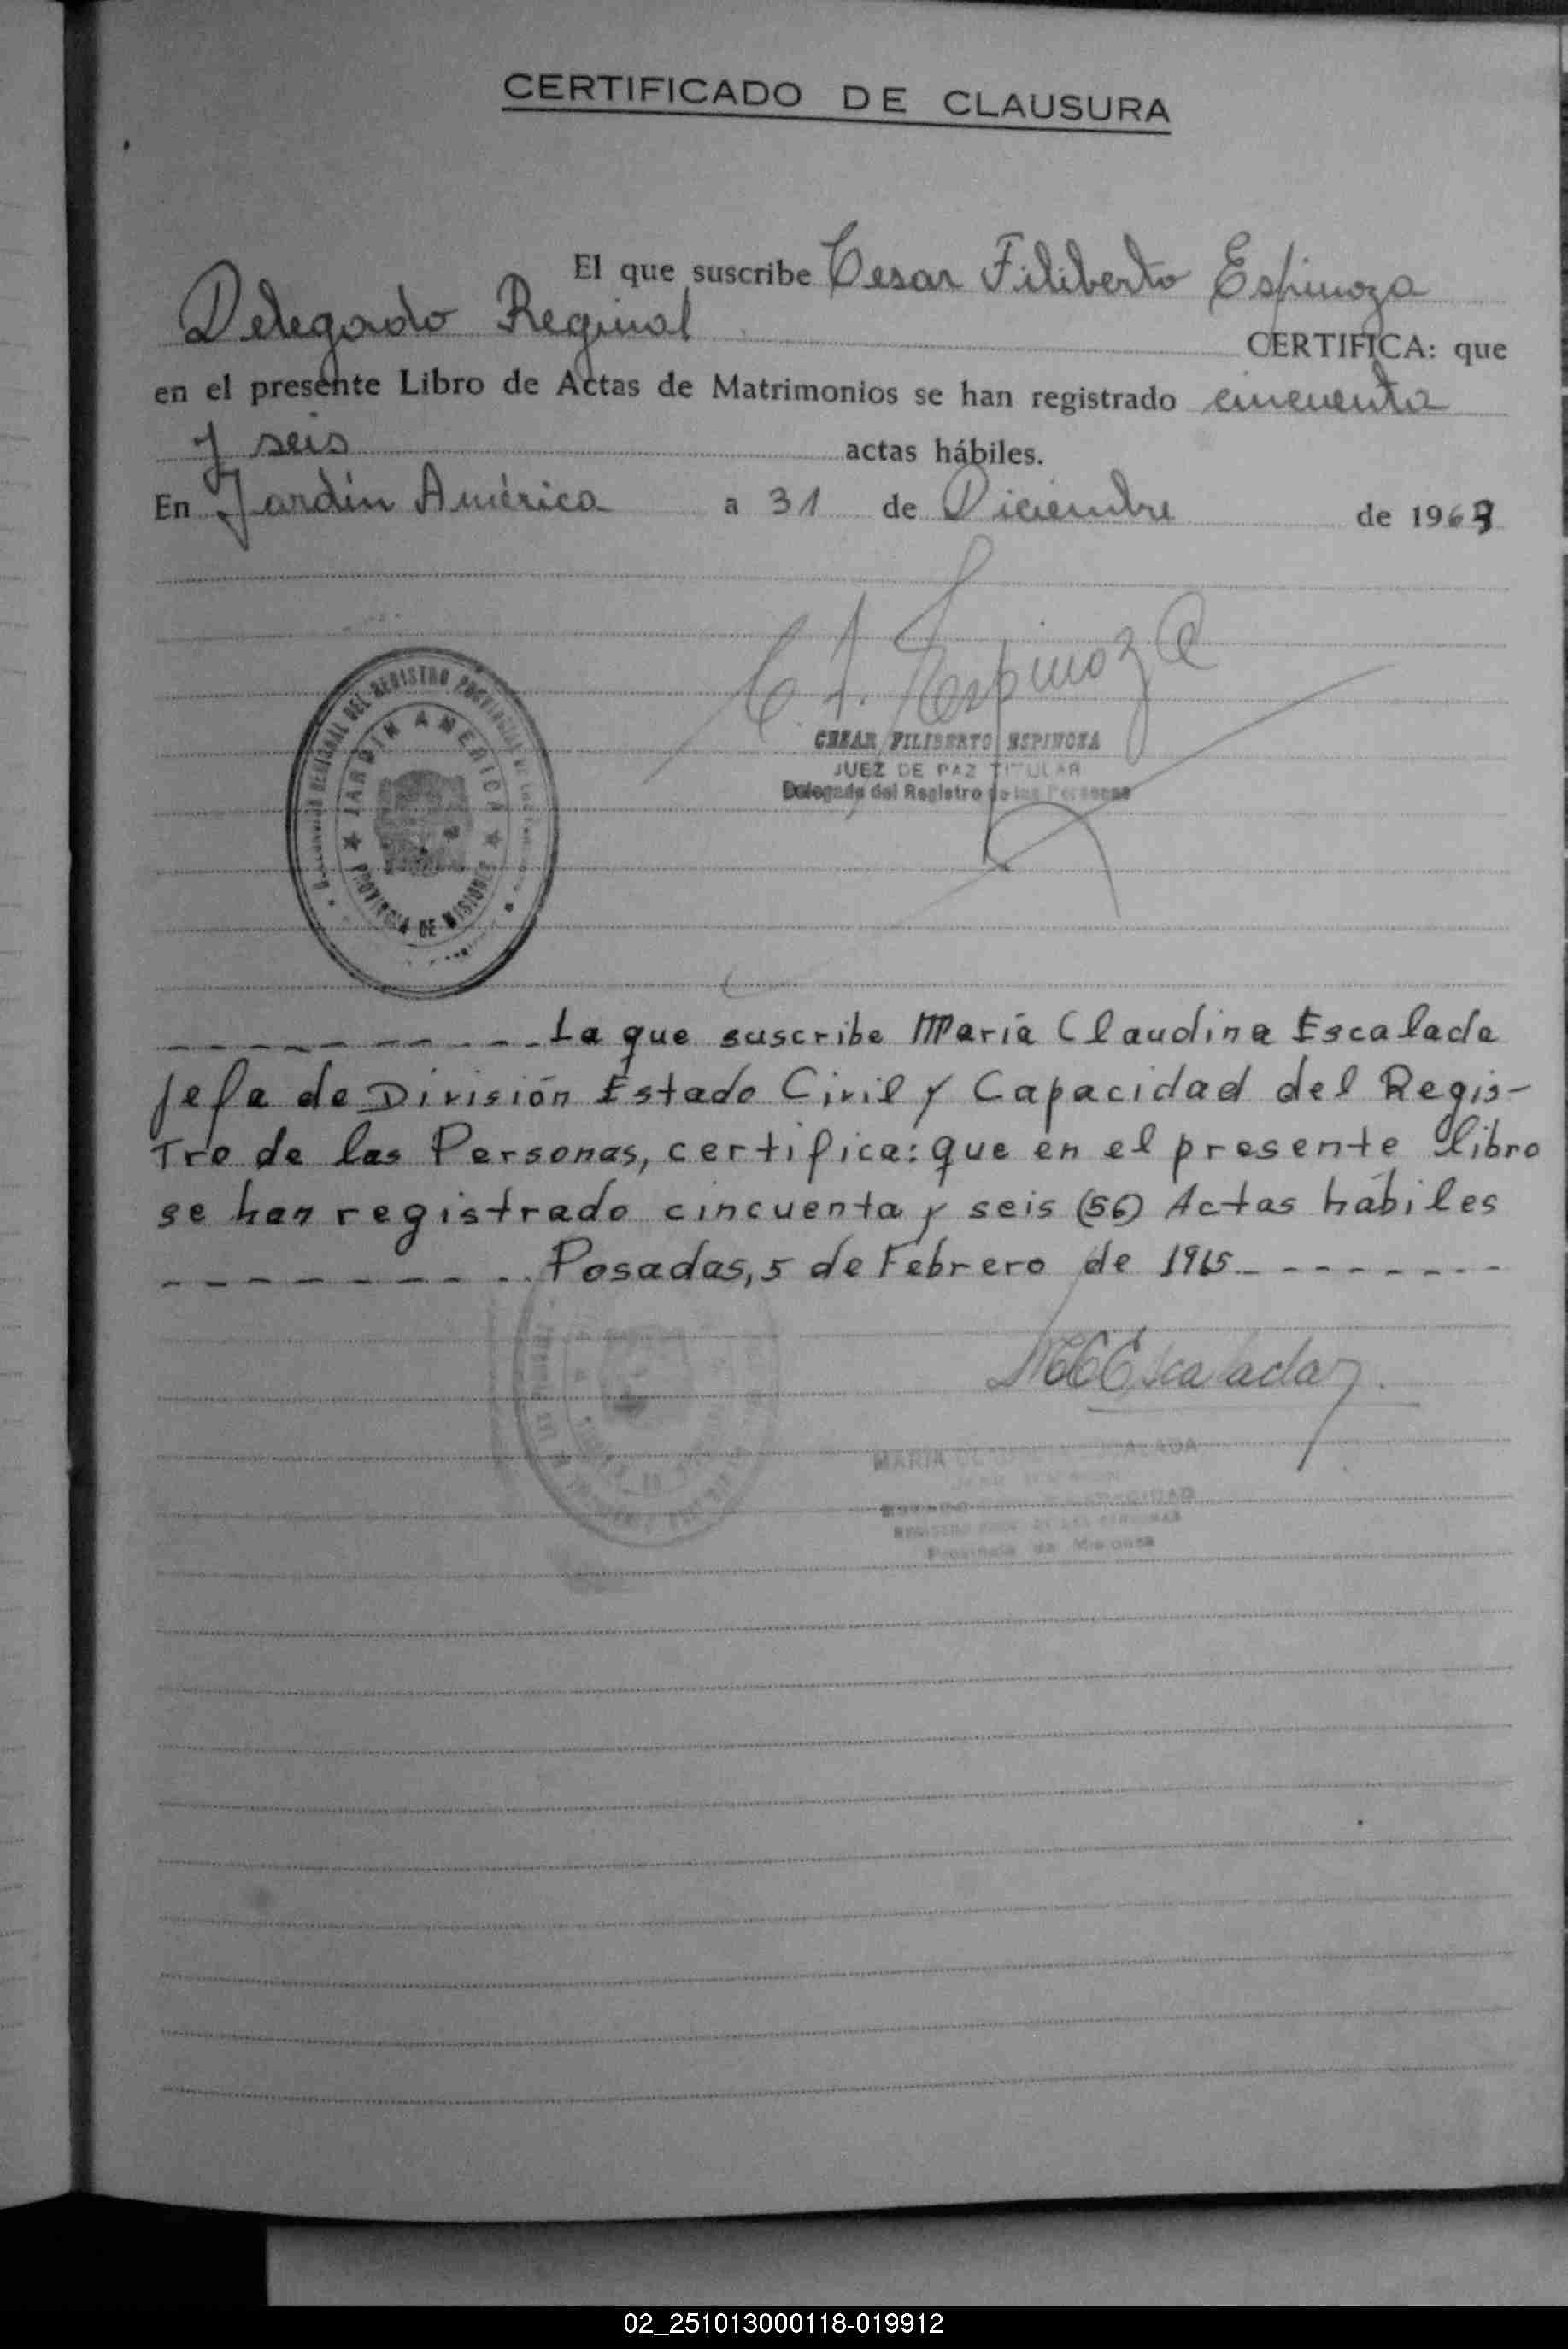 CERTIFICADO DE CLAUSURA
El que suscribe Cesar Filiberto Espinoza
Delegado Reginal CERTIFICA: que
en el presente Libro de Actas de Matrimonios se han registrado cincuenta
y seis actas hábiles.
En Jardín América a 31 de Diciembre de 196
DEL REGISTRO PROVINCIAL
JARDIN AMERICA
PROVINCIA DE MISIONES
C. F. Espinoza
CESAR FILIBERTO ESPINOZA
JUEZ DE PAZ TITULAR
Delegado del Registro de las Personas
La que suscribe María Claudina Escalada
Jefa de División Estado Civil y Capacidad del Regis-
tro de las Personas, certifica: que en el presente libro
se han registrado cincuenta y seis (56) Actas hábiles
Posadas, 5 de Febrero de 1965
MCEscalada
MARIA ESCALADA
CAPACIDAD
REGISTRO PROV. DE LAS PERSONAS
Provincia de Misiones
02_251013000118-019912